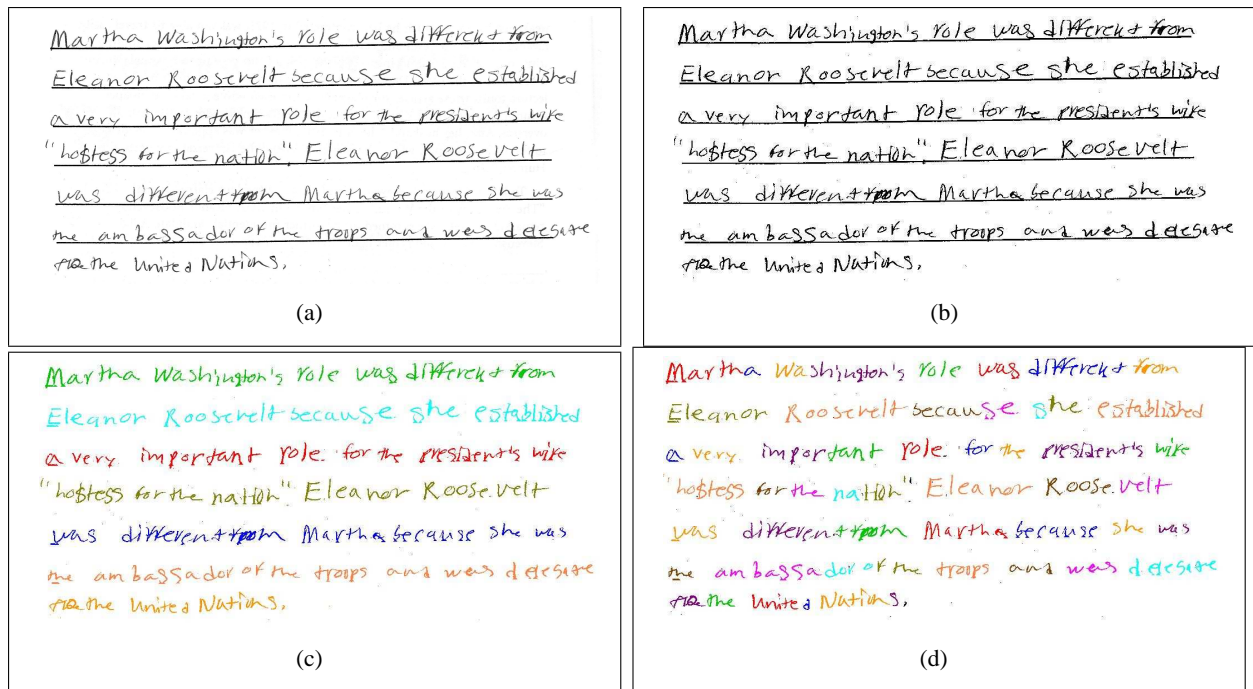 Martha Washington's role was different from
Eleanor Roosevelt because she established
a very important role for the president's wife
"hostess for the nation". Eleanor Roosevelt
was different from Martha because she was
the ambassador of the troops and was delegate
the United Nations.
(a)
Martha Washington's role was different from
Eleanor Roosevelt because she established
a very important role for the president's wife
"hostess for the nation". Eleanor Roosevelt
was different from Martha because she was
the ambassador of the troops and was delegate
the United Nations.
(b)
Martha Washington's role was different from
Eleanor Roosevelt because she established
a very important role. for the president's wife
"hostess for the nation". Eleanor Roosevelt
was different from Martha because she was
the ambassador of the troops and was delegate
the United Nations.
(c)
Martha Washington's role was different from
Eleanor Roosevelt because she established
a very important role. for the president's wife
"hostess for the nation". Eleanor Roosevelt
was different from Martha because she was
the ambassador of the troops and was delegate
the United Nations.
(d)